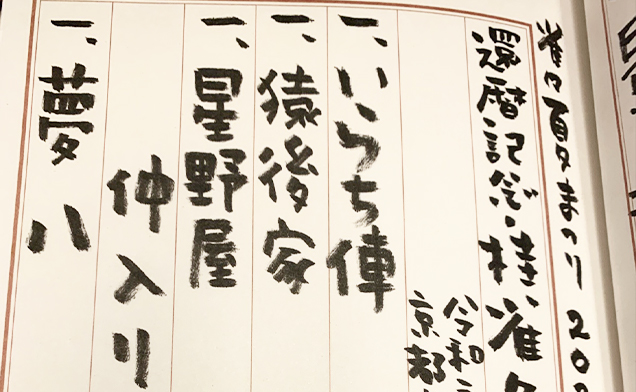 雀々夏まつり 20
還暦記念・桂雀々
令和
京都
一、いらち俥
一、猿後家
一、星野屋
仲入り
一、夢八